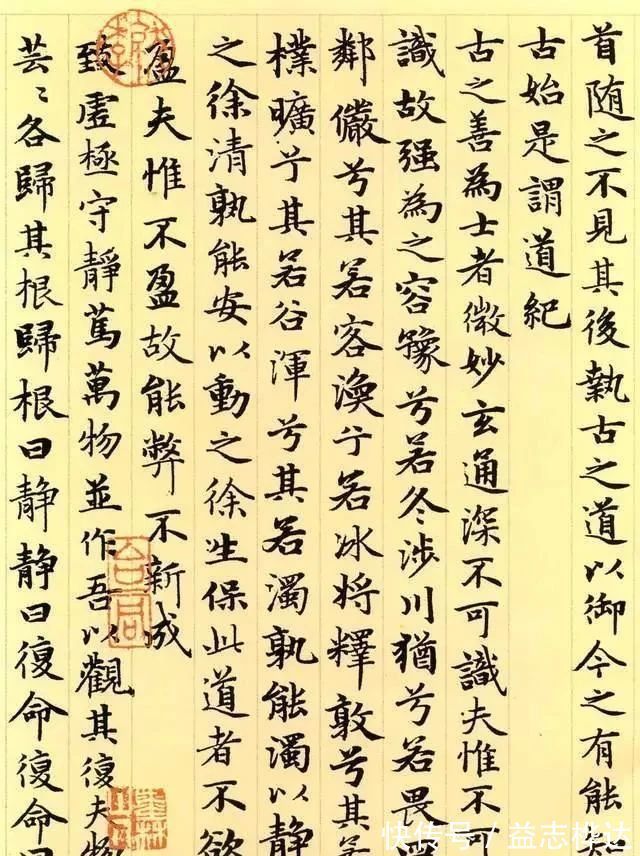 首随之不見其後執古之道以御今之有能知
古始是謂道紀
古之善為士者微妙玄通深不可識夫惟不可
識故强為之容豫兮若冬涉川猶兮若畏四
鄰儼兮其若容渙兮若冰将釋敦兮其若
樸曠兮其若谷渾兮其若濁孰能濁以静
之徐清孰能安以動之徐生保此道者不欲
盈夫惟不盈故能弊不新成
致虛極守靜篤萬物並作吾以觀其復夫物
芸〻各歸其根歸根曰静静曰復命復命曰
快传号/益志桃达